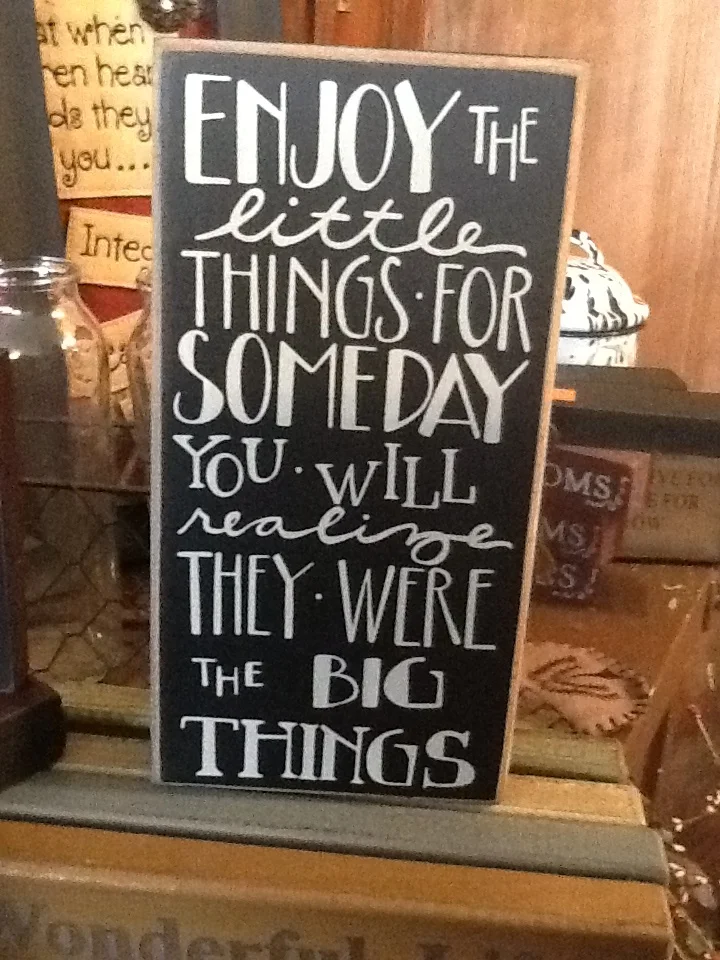 at when
hen hear
ds they
you...
Integ
ENJOY THE
little
THINGS·FOR
SOMEDAY
YOU·WILL
realize
THEY·WERE
THE BIG
THINGS
OMS,
MS
FOR
Wonderful